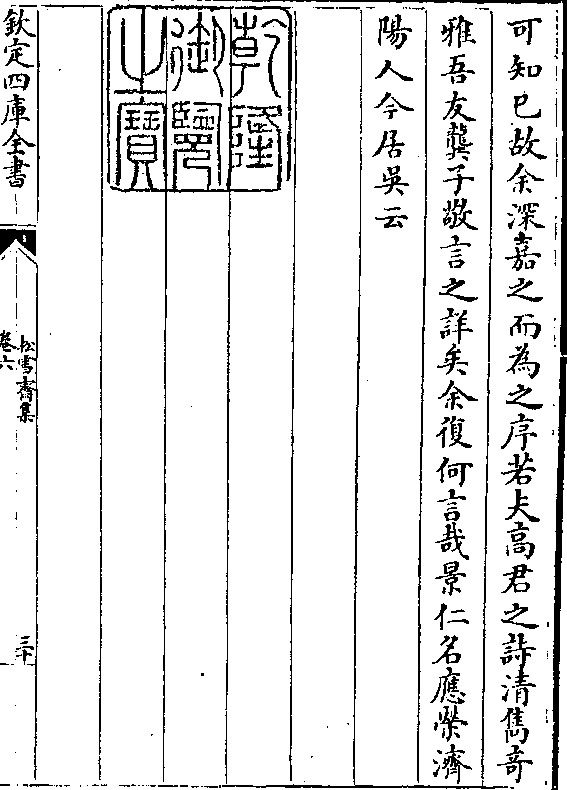 可知已故余深嘉之而為之序若夫高君之詩清雋奇
雅吾友龔子敬言之詳矣余復何言哉景仁名應㮚濟
陽人今居吳云
乾隆御覽之寶
欽定四庫全書
松雪齋集
卷六
三十